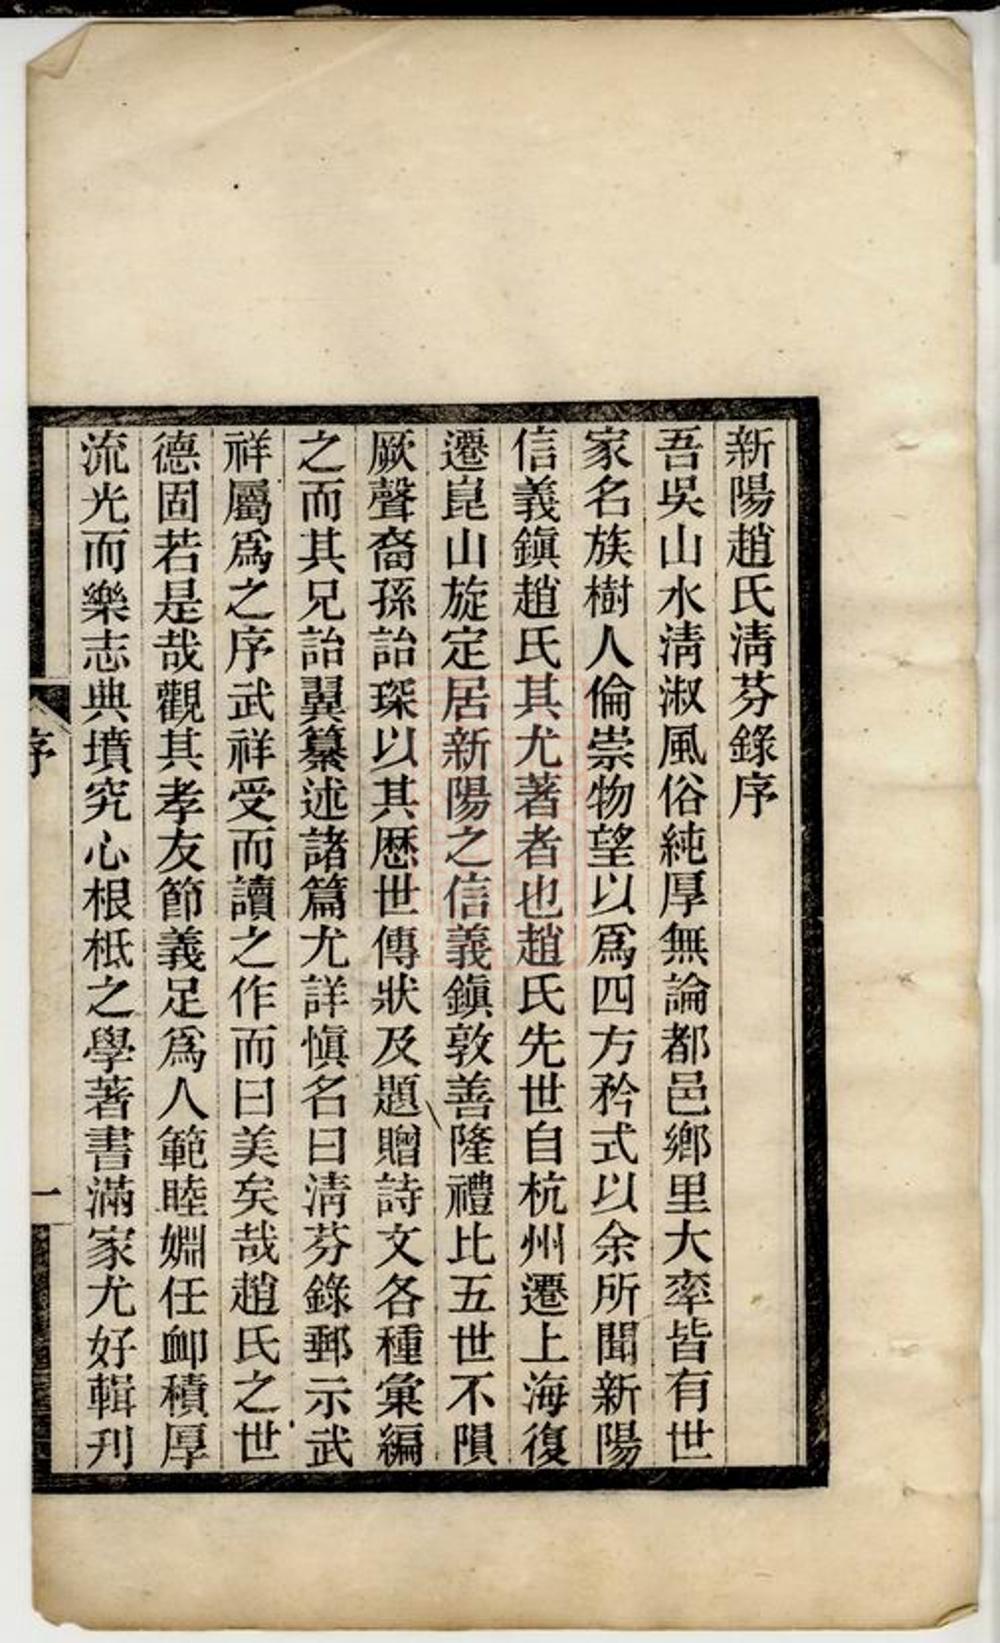 新陽趙氏淸芬錄序
吾吳山水淸淑風俗純厚無論都邑鄕里大率皆有世
家名族樹人倫崇物望以爲四方矜式以余所聞新陽
信義鎭趙氏其尤著者也趙氏先世自杭州遷上海復
遷崑山旋定居新陽之信義鎭敦善隆禮比五世不隕
厥聲裔孫詒琛以其歷世傳狀及題贈詩文各種彙編
之而其兄詒翼纂述諸篇尤詳愼名曰淸芬錄郵示武
祥屬爲之序武祥受而讀之作而曰美矣哉趙氏之世
德固若是哉觀其孝友節義足爲人範睦婣任卹積厚
流光而樂志典墳究心根柢之學著書滿家尤好輯刋
序
一